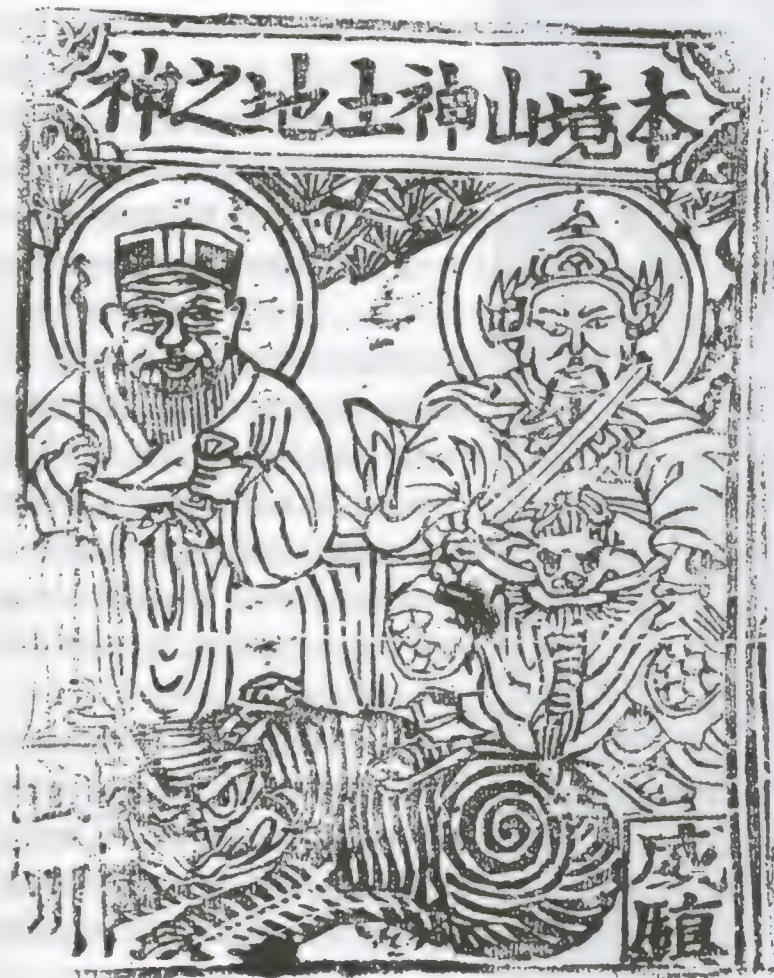 本境山神土地之神